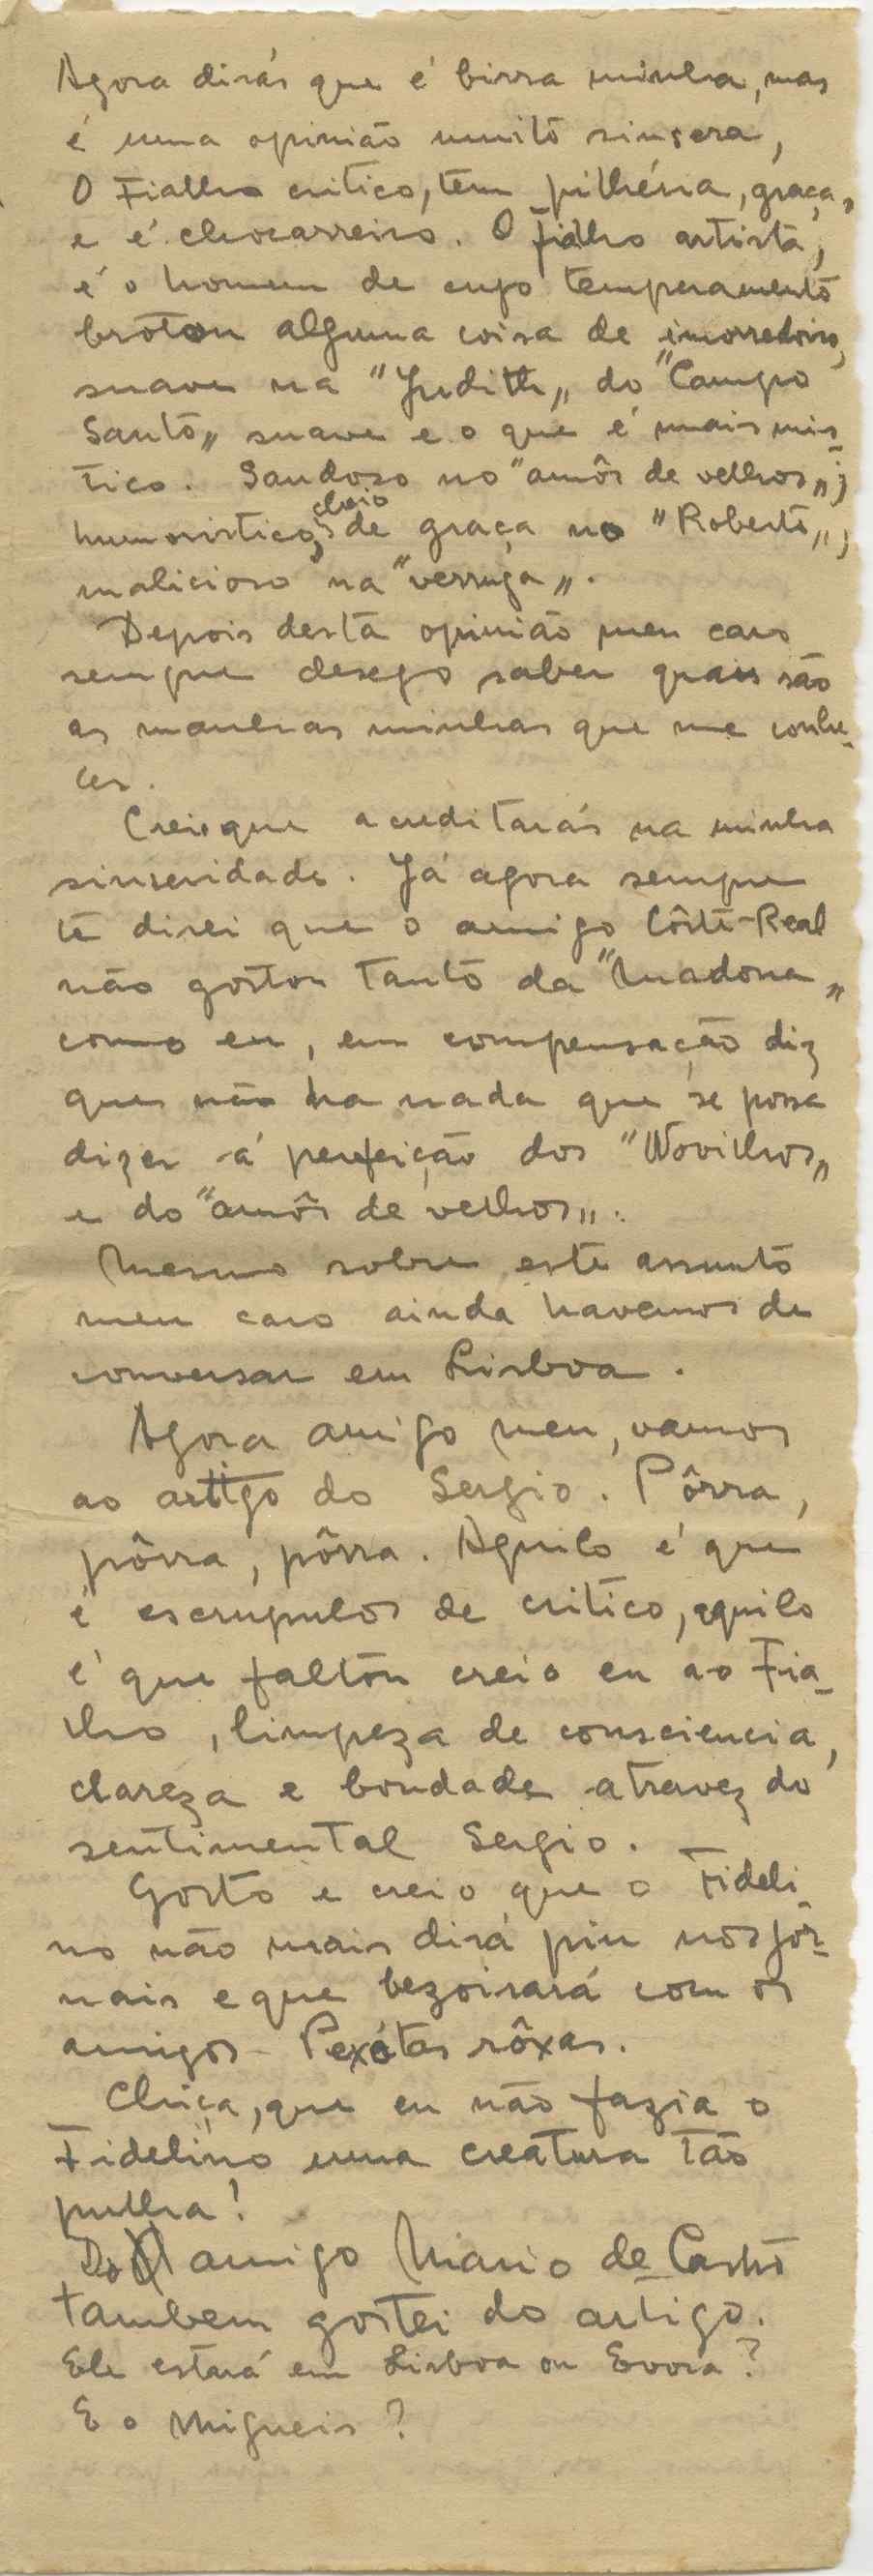 Agora dirás que é birra minha, mas
é uma opinião muito sinsera,
O Fialho critico, tem pilhéria, graça,
e é chocarreiro. O Fialho artista,
é o homem de cujo temperamento
brotou alguma coisa de imorredoiro,
suave na "Judith„ do "Campo
Santo„ suave e o que é mais mis-
tico. Saudoso no "amôr de velhos„;
humoristico, cheio de graça no "Roberto„,
malicioso na "verruga„.
Depois desta opinião meu caro
sempre desejo saber quais são
as manhas minhas que me conhe-
ces.
Creio que acreditarás na minha
sinseridade. Já agora sempre
te direi que o amigo Côrte-Real
não gostou tanto da "Madona„
como eu, em compensação diz
que não ha nada que se possa
dizer á perfeição dos "Novilhos„
e do "amôr de velhos„.
Mesmo sobre este assunto
meu caro ainda havemos de
conversar em Lisboa.
Agora amigo meu, vamos
ao artigo do Sergio. Pôrra,
pôrra, pôrra. Aquilo é que
é escrupulos de critico, aquilo
é que faltou creio eu ao Fia-
lho, limpeza de consciencia,
clareza e bondade atravez do
sentimental Sergio.
Gosto e creio que o Fideli-
no não mais dirá piu nos jor-
nais e que bezoirará com os
amigos Pexótas rôxas.
Chiça, que eu não fazia o
Fidelino uma creatura tão
pulha!
Do amigo Mario de Castro
tambem gostei do artigo.
Ele estará em Lisboa ou Evora?
E o Migueis?